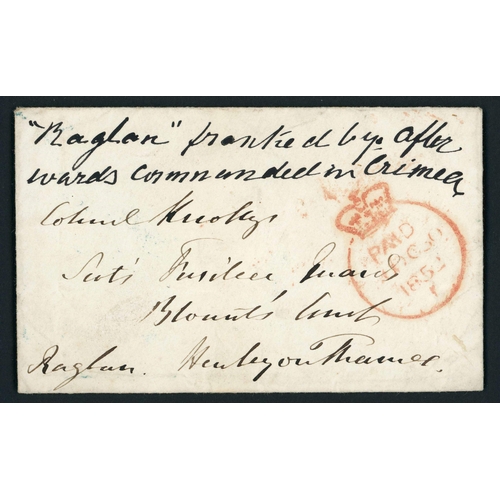 "Raglan" franked by. After
wards commanded in Crimea
Colonel Knollys
Scots Fusilier Guards
Blount's Court
Raglan. Henley on Thames.
PAID
30
1852